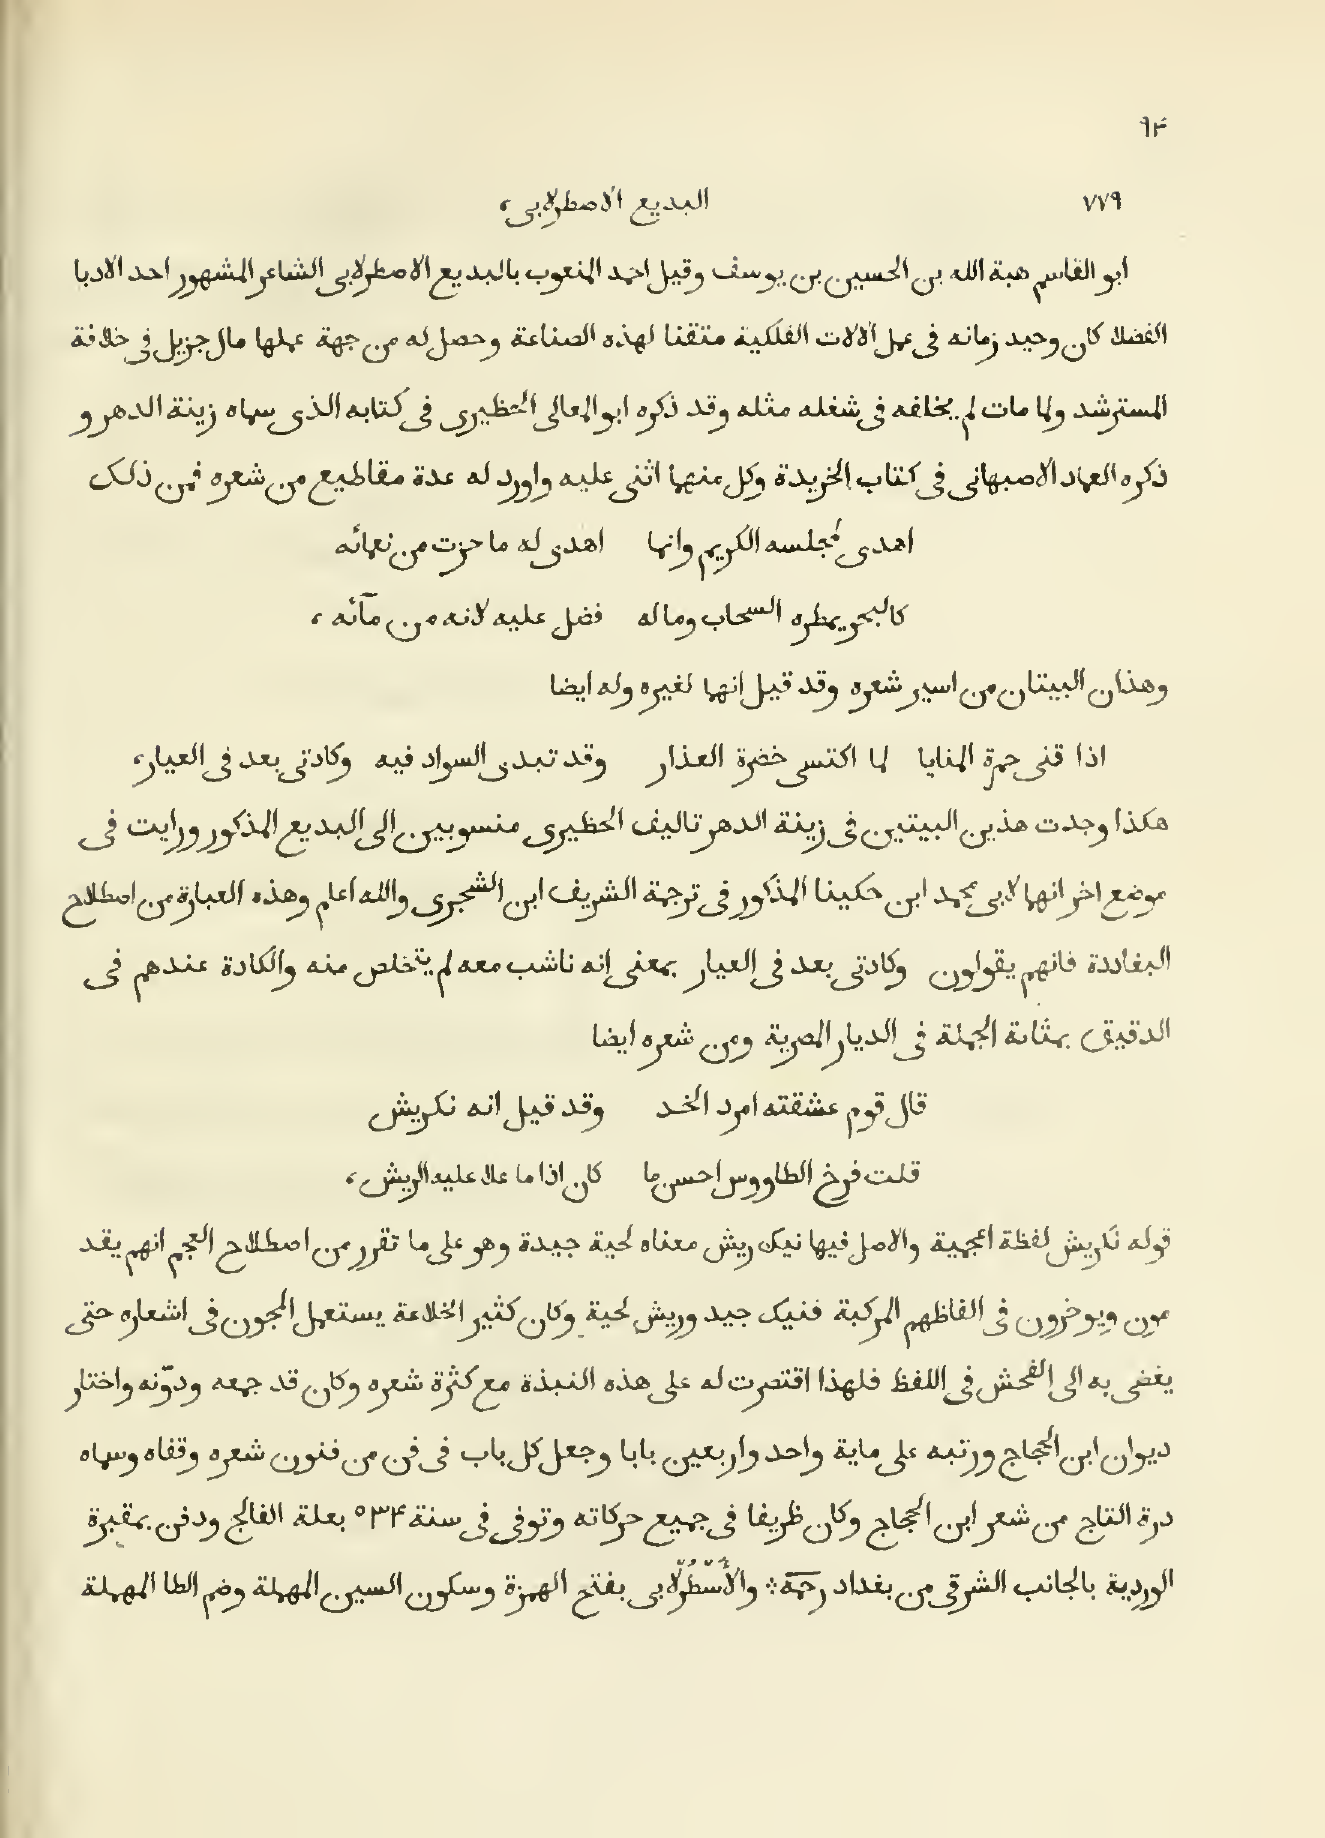 ٩٢
٧٧٩ البديع الاصطرلابى،
ابو القاسم هبة الله بن الحسين بن يوسف وقيل احمد المنعوب بالبديع الاصطرلابى الشاعر المشهور احد الادبا
الفضلا كان وحيد زمانه فى عمل الالات الفلكية متقنا لهذه الصناعة وحصل له من جهة عملها مال جزيل فى خلافة
المسترشد ولما مات لم يخلفه فى شغله مثله وقد ذكره ابو المعالى الحظيرى فى كتابه الذى سماه زينة الدهر و
ذكره العماد الاصبهانى فى كتاب الخريدة وكل منهما اثنى عليه واورد له عدة مقاطيع من شعره فمن ذلك
اهدى لمجلسه الكريم وانما اهدى له ما حزت من نعمائه
كالبحر يمطره السحاب وما له فضل عليه لانه من مآئه،
وهذان البيتان من اسير شعره وقد قيل انهما لغيره وله ايضا
اذا قنى حمرة المنايا لما اكتسى خضرة العذار وقد تبدى السواد فيه وكادتى بعد فى العيار،
هكذا وجدت هذين البيتين فى زينة الدهر تاليف الحظيرى منسوبين الى البديع المذكور ورايت فى
موضع اخر انهما لابى محمد ابن حكينا المذكور فى ترجمة الشريف ابن الشجرى والله اعلم وهذه العبارة من اصطلاح
البغاددة فانهم يقولون وكادتى بعد فى العيار بمعنى انه ناشب معه لم يتخلص منه والكادة عندهم فى
الدقيق بمثابة الجملة فى الديار المصرية ومن شعره ايضا
قال قوم عشقته امرد الخد وقد قيل انه نكريش
قلت فرخ الطاووس احسن ما كان اذا ما علا عليه الريش،
قوله نكريش لفظة اعجمية والاصل فيها نيك ريش معناه لحية جيدة وهو على ما تقرر من اصطلاح العجم انهم يقد
مون ويوخرون فى الفاظهم المركبة فنيك جيد وريش لحية وكان كثير الخلاعة يستعمل المجون فى اشعاره حتى
يفضى به الى الفحش فى اللفظ فلهذا اقتصرت له على هذه النبذة مع كثرة شعره وكان قد جمعه ودوّنه واختار
ديوان ابن الحجاج ورتبه على ماية واحد واربعين بابا وجعل كل باب فى فن من فنون شعره وقفاه وسماه
درة التاج من شعر ابن الحجاج وكان ظريفا فى جميع حركاته وتوفى فى سنة ٥٣٤ بعلة الفالج ودفن بمقبرة
الوردية بالجانب الشرقى من بغداد رحمة والأسْطُرلابى بفتح الهمزة وسكون السين المهملة وضم الطا المهملة